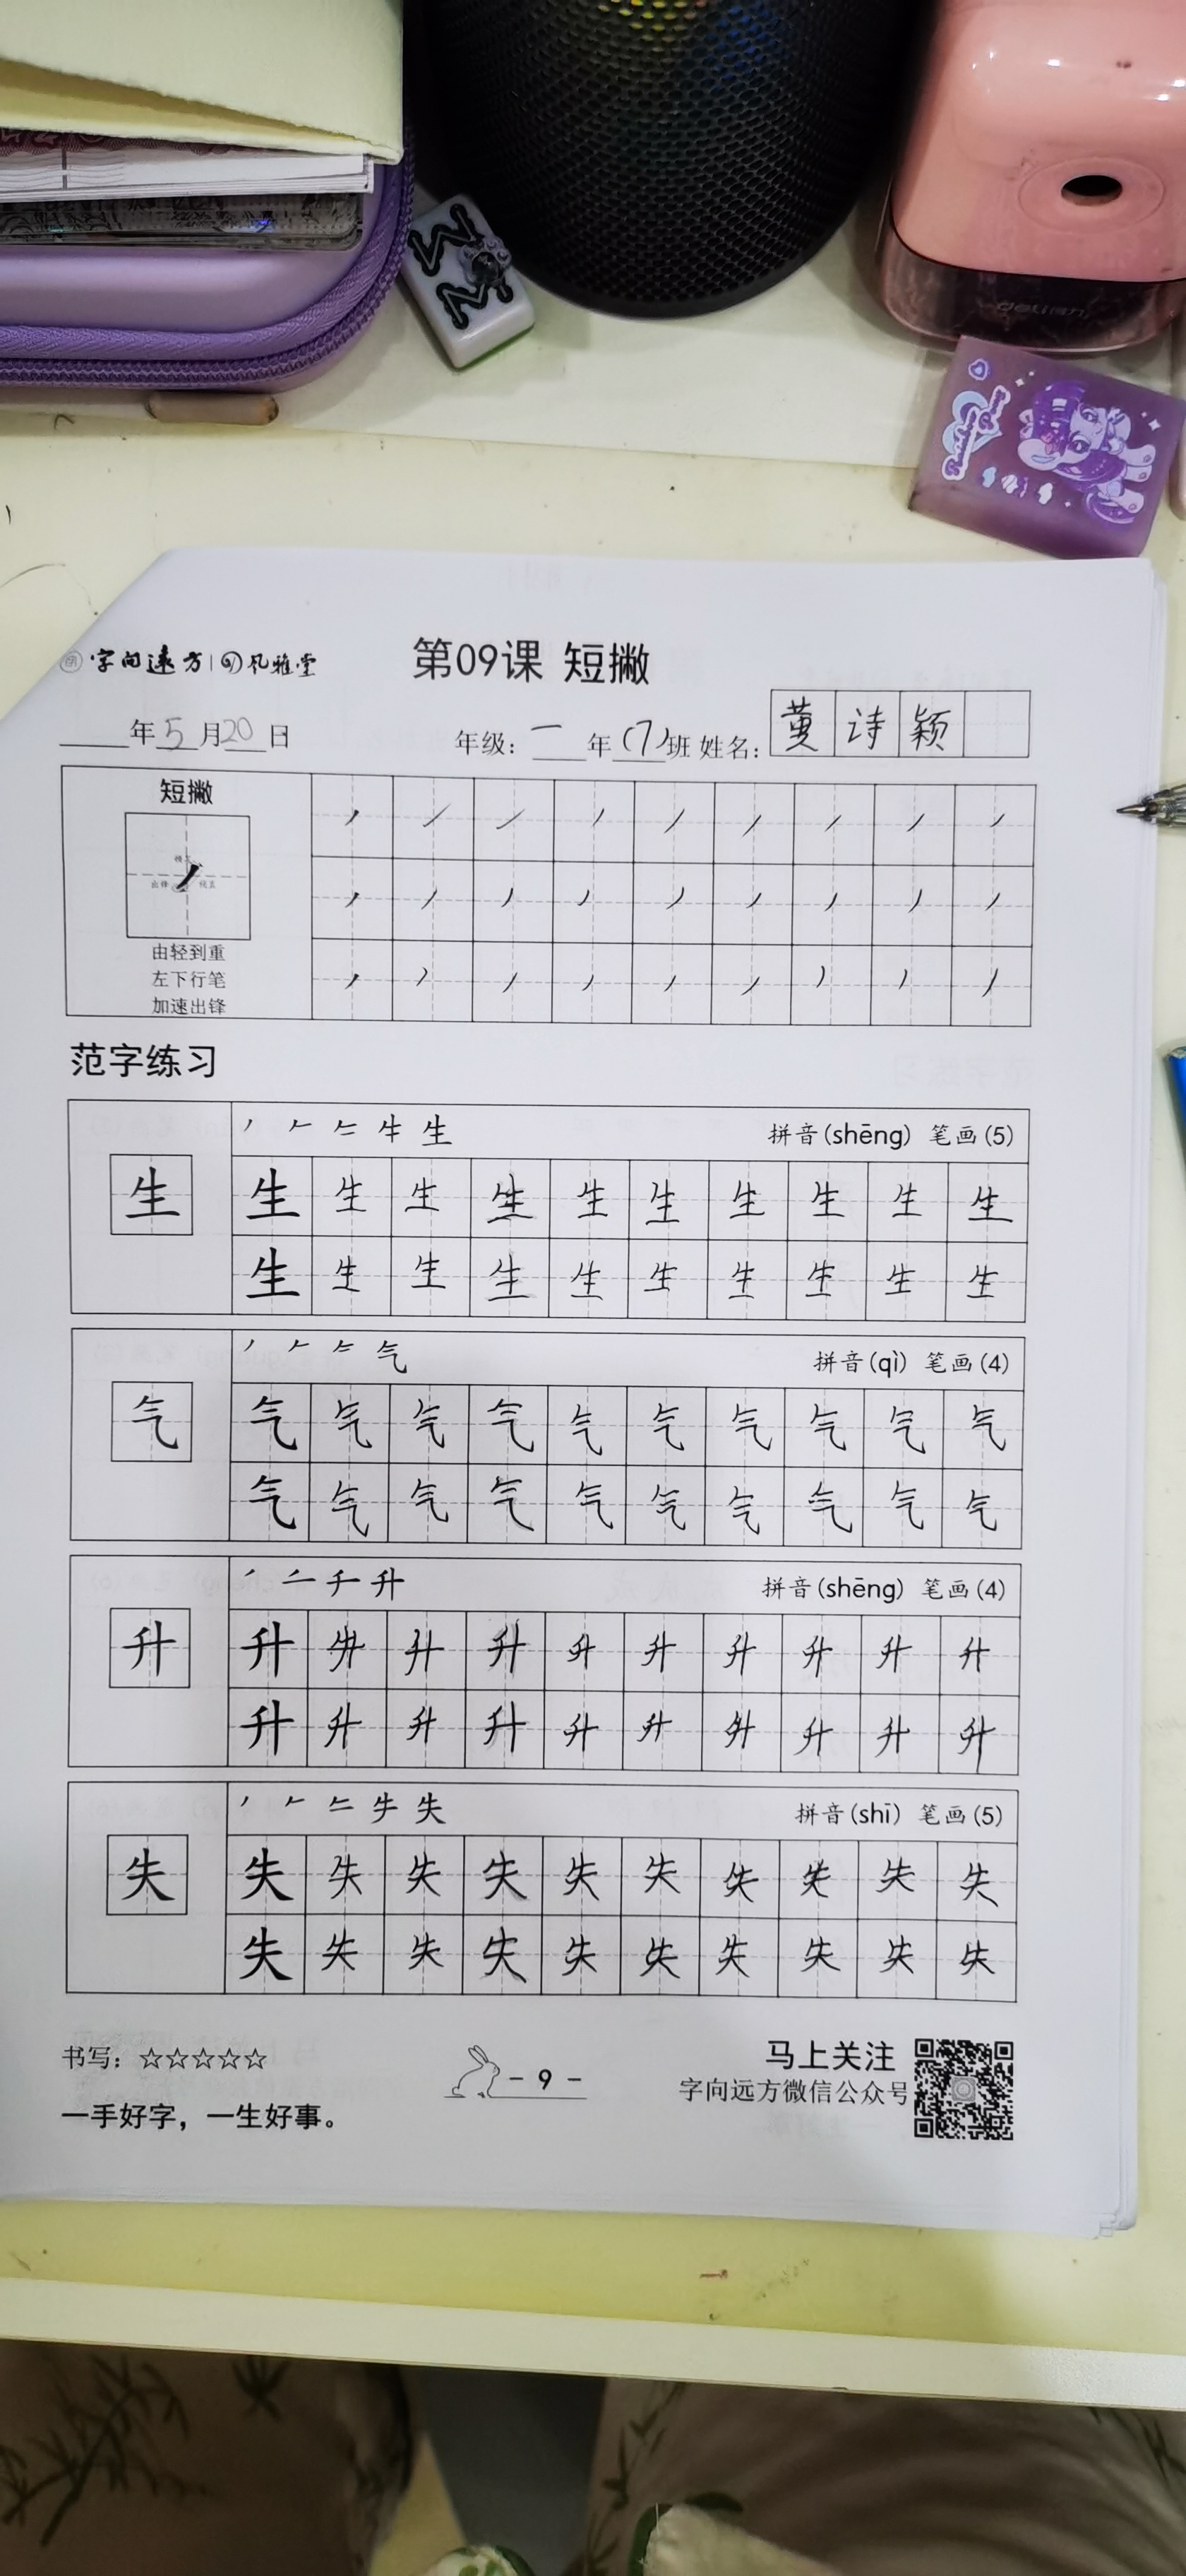 字向远方 风雅堂
第09课 短撇
年5月20日 年级：一年(7)班 姓名：黄诗颖
短撇
由轻到重
左下行笔
加速出锋
范字练习
拼音(shēng) 笔画(5)
生 生 生 生 生 生 生 生 生 生 生
生 生 生 生 生 生 生 生 生 生
拼音(qì) 笔画(4)
气 气 气 气 气 气 气 气 气 气 气
气 气 气 气 气 气 气 气 气 气
拼音(shēng) 笔画(4)
升 升 升 升 升 升 升 升 升 升 升
升 升 升 升 升 升 升 升 升 升
拼音(shī) 笔画(5)
失 失 失 失 失 失 失 失 失 失 失
失 失 失 失 失 失 失 失 失 失
书写：☆☆☆☆☆
- 9 -
马上关注
字向远方微信公众号
一手好字，一生好事。